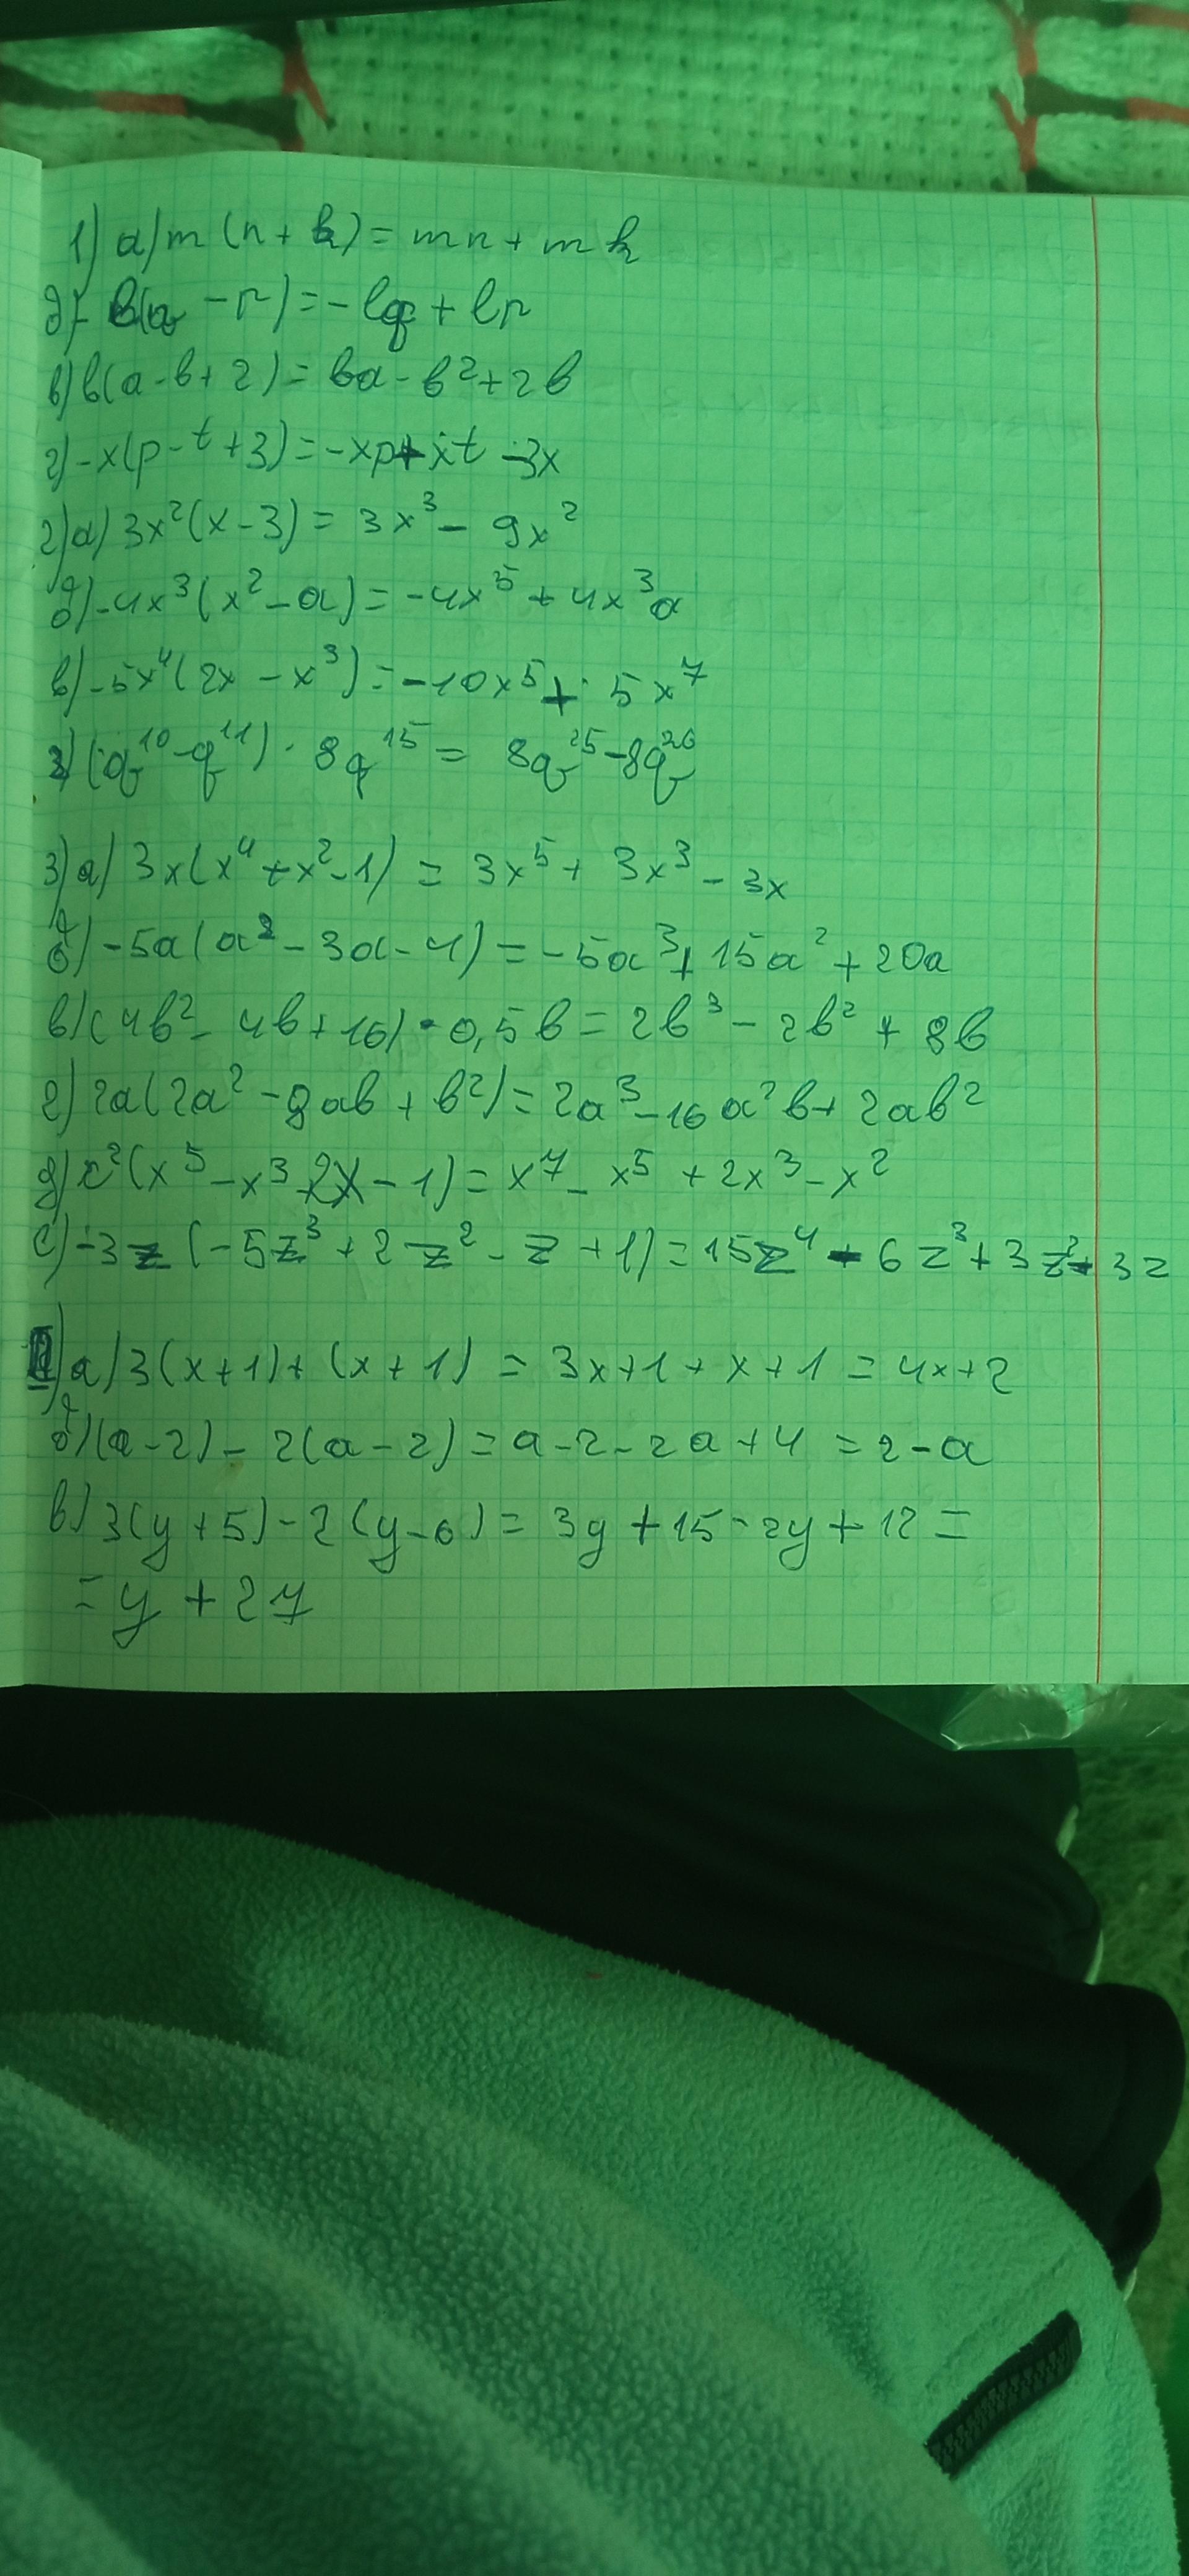 1) а) m (n + k) = mn + mk
б) - l(q - r) = - lq + lr
в) b(a - b + 2) = ba - b² + 2b
г) -x(p - t + 3) = -xp + xt - 3x
2) а) 3x²(x - 3) = 3x³ - 9x²
б) -4x³(x² - a) = -4x⁵ + 4x³a
в) -5x⁴(2x - x³) = -10x⁵ + 5x⁷
г) (q¹⁰ - q¹¹) · 8q¹⁵ = 8q²⁵ - 8q²⁶
3) а) 3x(x⁴ + x² - 1) = 3x⁵ + 3x³ - 3x
б) -5a(a² - 3a - 4) = -5a³ + 15a² + 20a
в) (4b² - 4b + 16) · 0,5b = 2b³ - 2b² + 8b
г) 2a(2a² - 8ab + b²) = 2a³ - 16a²b + 2ab²
д) x²(x⁵ - x³ + 2x - 1) = x⁷ - x⁵ + 2x³ - x²
е) -3z (-5z³ + 2z² - z + 1) = 15z⁴ - 6z³ + 3z² - 3z
а) 3(x + 1) + (x + 1) = 3x + 1 + x + 1 = 4x + 2
б) (a - 2) - 2(a - 2) = a - 2 - 2a + 4 = 2 - a
в) 3(y + 5) - 2(y - 6) = 3y + 15 - 2y + 12 =
= y + 27